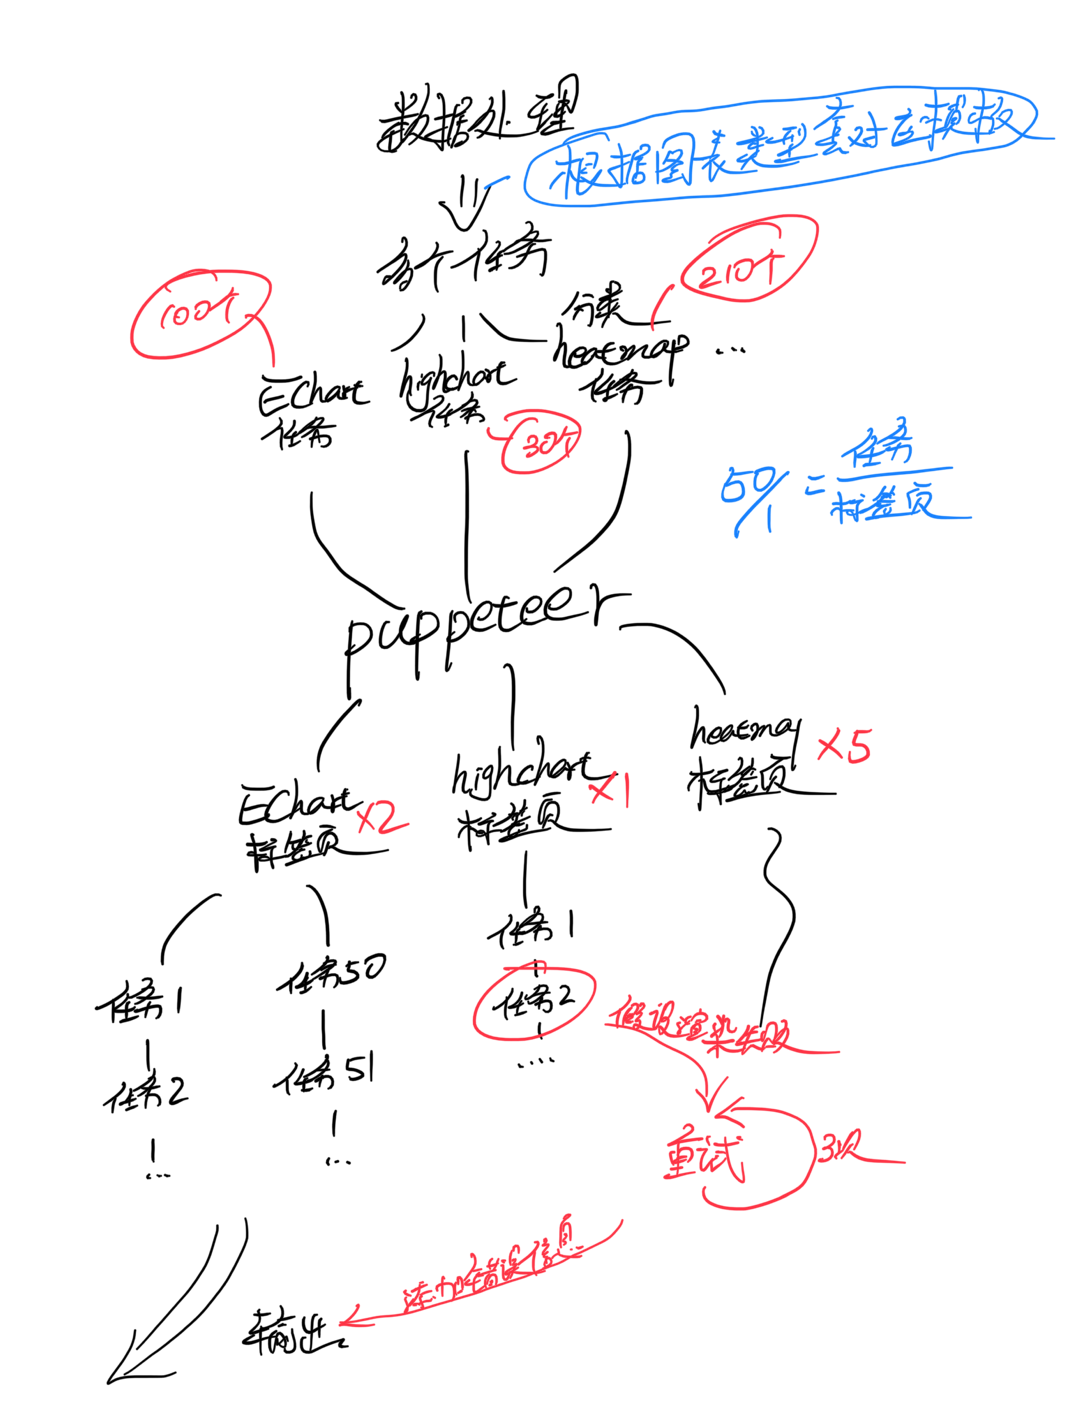 数据处理
根据图表类型套对应模板
多个任务
210个
100个
分类
heatmap
任务
...
EChart
任务
highchart
任务
30个
50/1 = 任务/标签页
puppeteer
EChart
标签页 ×2
highchart
标签页 ×1
heatmap
标签页 ×5
任务1
任务2
...
任务50
任务51
...
任务1
任务2
....
假设渲染失败
重试
3次
添加错误信息
输出